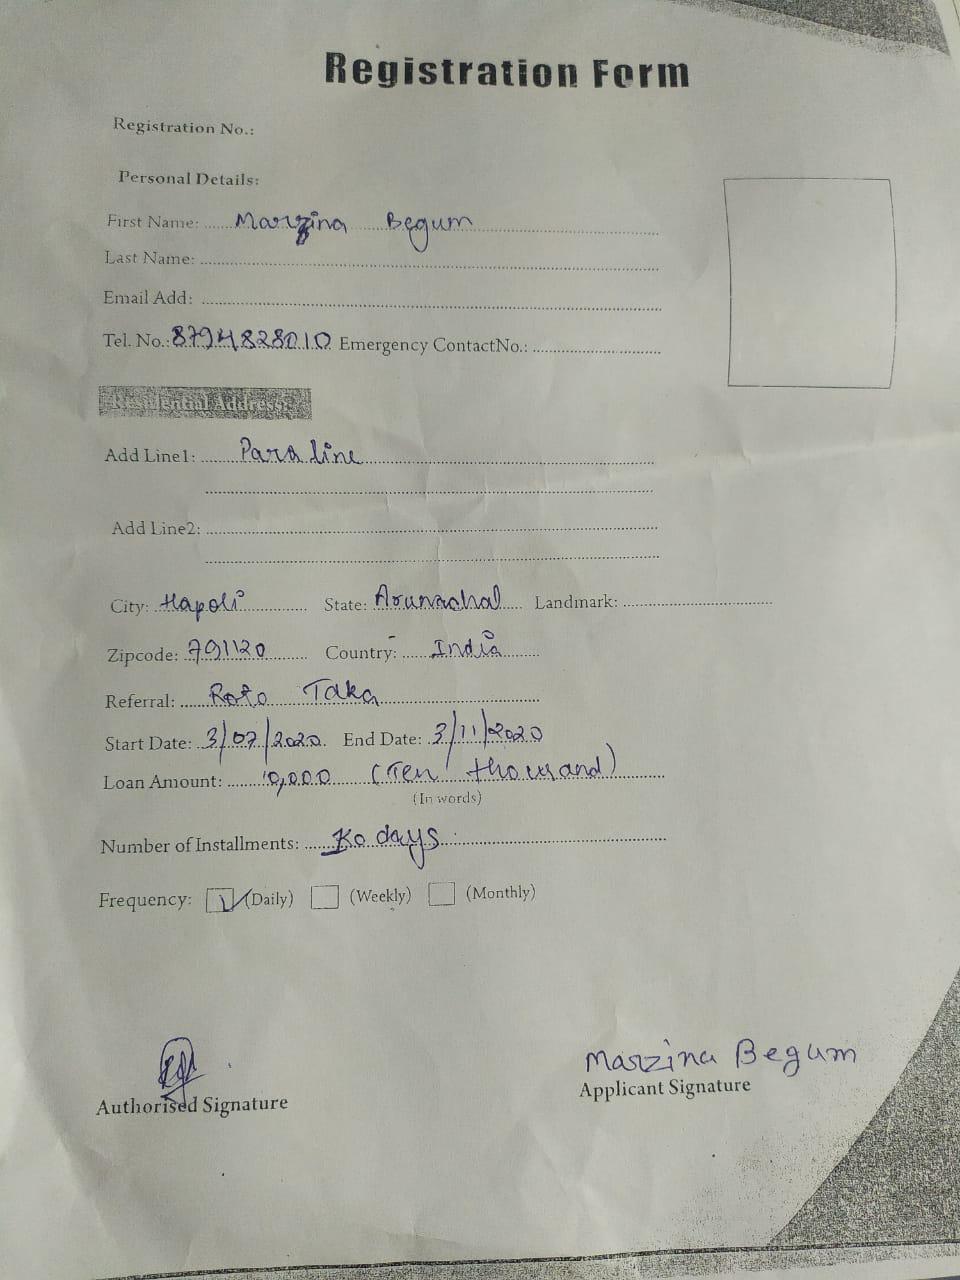 Registration Form
Registration No.:
Personal Details:
First Name: Marzina Begum
Last Name:
Email Add:
Tel. No.: 8794828010 Emergency ContactNo.:
Residential Address:
Add Line1: Para line
Add Line2:
City: Hapoli State: Arunachal Landmark:
Zipcode: 791120 Country: India
Referral: Roto Taka
Start Date: 3/07/2020 End Date: 3/11/2020
Loan Amount: 10,000 (Ten thousand)
(In words)
Number of Installments: days
Frequency: (Daily) (Weekly) (Monthly)
Marzina Begum
Authorised Signature Applicant Signature